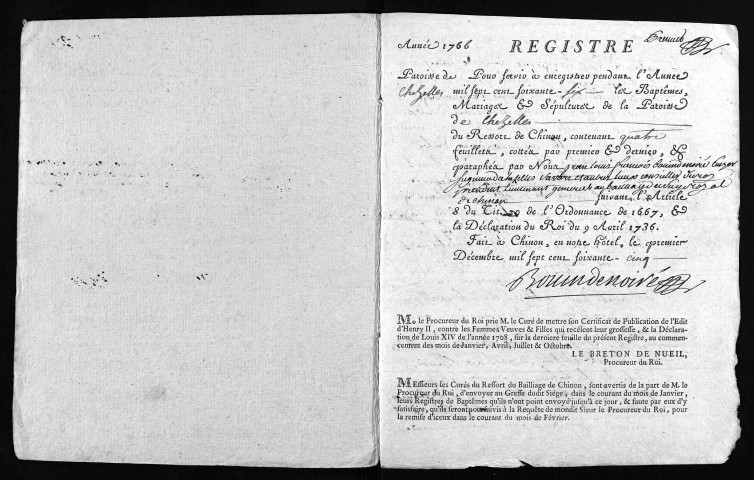 Année 1766 REGISTRE Premier
Paroisse de Chezelles
Pour servir à enregistrer pendant l'Année
mil sept cent soixante-six les Baptêmes,
Mariages & Sépultures de la Paroisse
de Chezelles
du Ressort de Chinon, contenant quatre
feuillets, cottés par premier & dernier, &
paraphés par Nous jean Louis francois
conseiller du roy
president Lieutenant general au bailliage
de chinon suivant l'Article
8 du Titre 20 de l'Ordonnance de 1667, &
la Déclaration du Roi du 9 Avril 1736.
Fait à Chinon, en notre hôtel, le premier
Décembre mil sept cent soixante-cinq
Bouin de noiré
M. le Procureur du Roi prie M. le Curé de mettre son Certificat de Publication de l'Edit
d'Henry II, contre les Femmes Veuves & Filles qui recélent leur grossesse, & la Déclara-
tion de Louis XIV de l'année 1708, sur la derniere feuille du présent Registre, au commen-
cement des mois de Janvier, Avril, Juillet & Octobre.
LE BRETON DE NUEIL,
Procureur du Roi.
MEssieurs les Curés du Ressort du Bailliage de Chinon, sont avertis de la part de M. le
Procureur du Roi, d'envoyer au Greffe dudit Siége, dans le courant du mois de Janvier,
leurs Registres de Baptêmes qu'ils n'ont point envoyé jusqu'à ce jour, & faute par eux d'y
satisfaire, qu'ils seront poursuivis à la Requête de mondit Sieur le Procureur du Roi, pour
la remise d'iceux dans le courant du mois de Février.